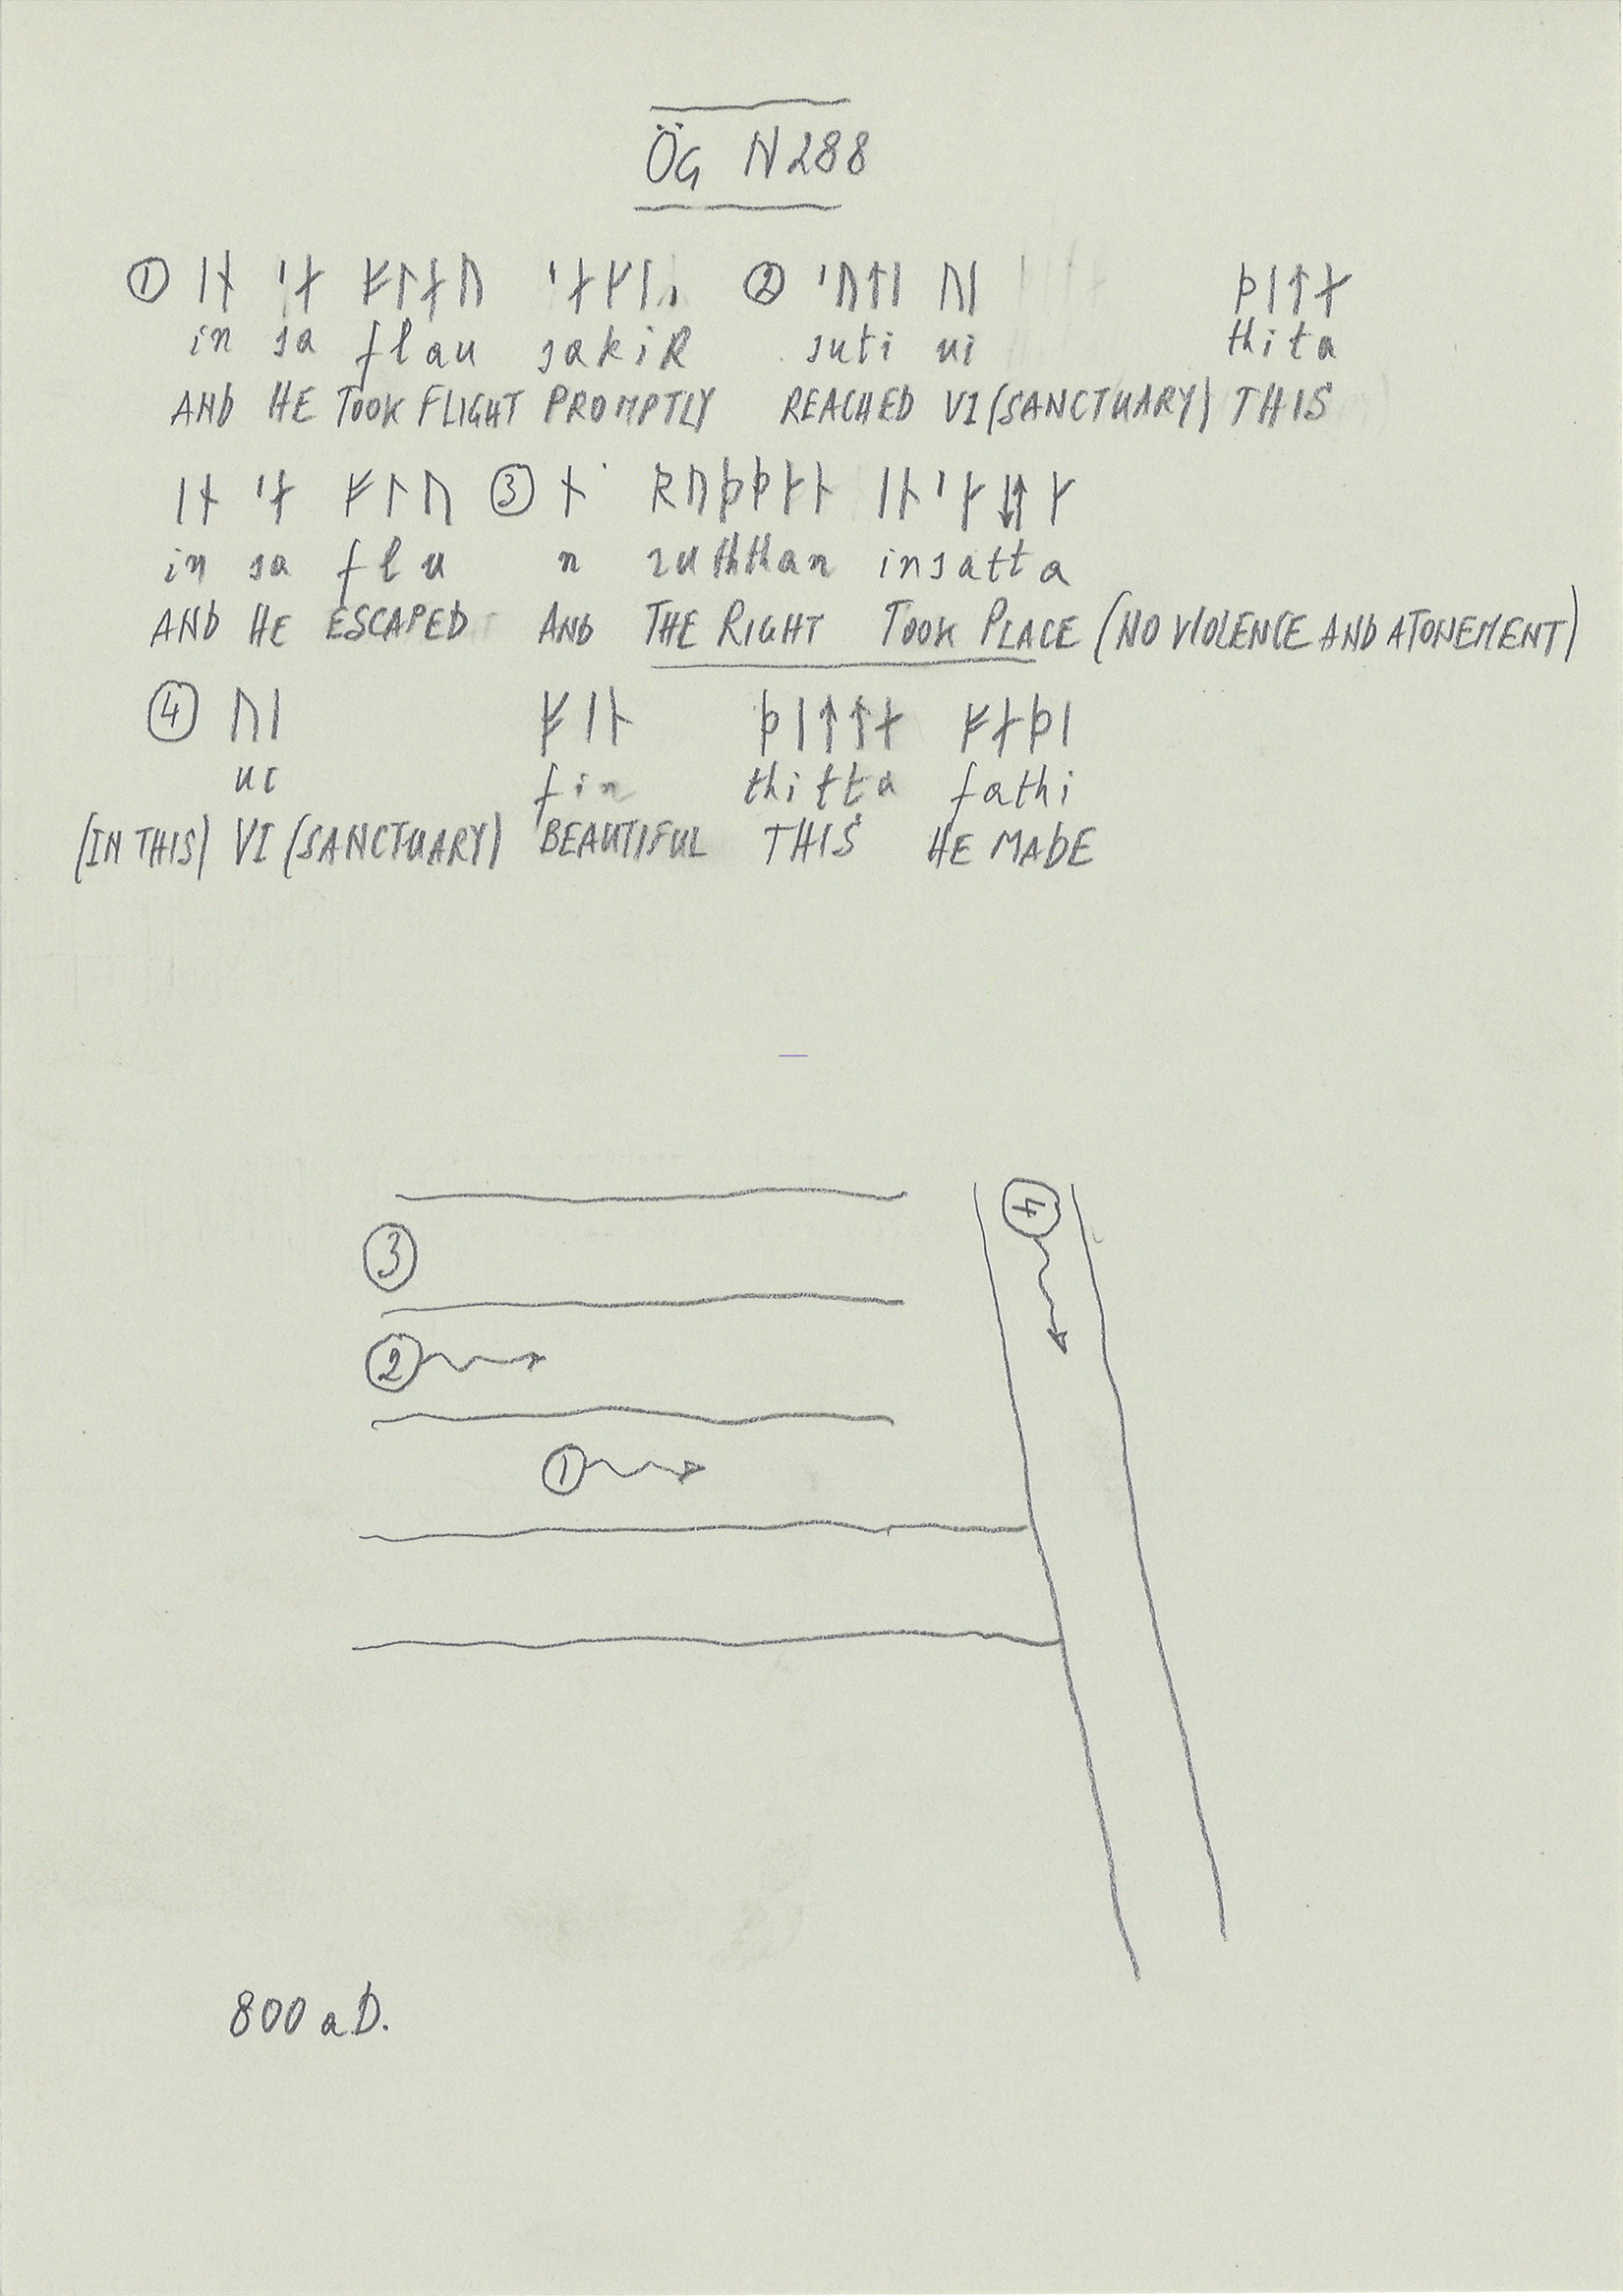 ÖG N288
① ᛁᚾ ᛌᛅ ᚠᛚᛅᚢ ᛌᛅᚴᛁᛧ ② ᛌᚢᛏᛁ ᚢᛁ ᚦᛁᛏᛅ
in sa flau sakiR suti ui thita
AND HE TOOK FLIGHT PROMPTLY REACHED VI (SANCTUARY) THIS
ᛁᚾ ᛌᛅ ᚠᛚᚢ ③ ᚾ ᚱᚢᚦᚦᛅᚾ ᛁᚾᛌᛅᛏᛏᛅ
in sa flu n ruththan insatta
AND HE ESCAPED AND THE RIGHT TOOK PLACE (NO VIOLENCE AND ATONEMENT)
④ ᚢᛁ ᚠᛁᚾ ᚦᛁᛏᛏᛅ ᚠᛅᚦᛁ
ui fin thitta fathi
(IN THIS) VI (SANCTUARY) BEAUTIFUL THIS HE MADE
④
③
②
①
800 a.D.